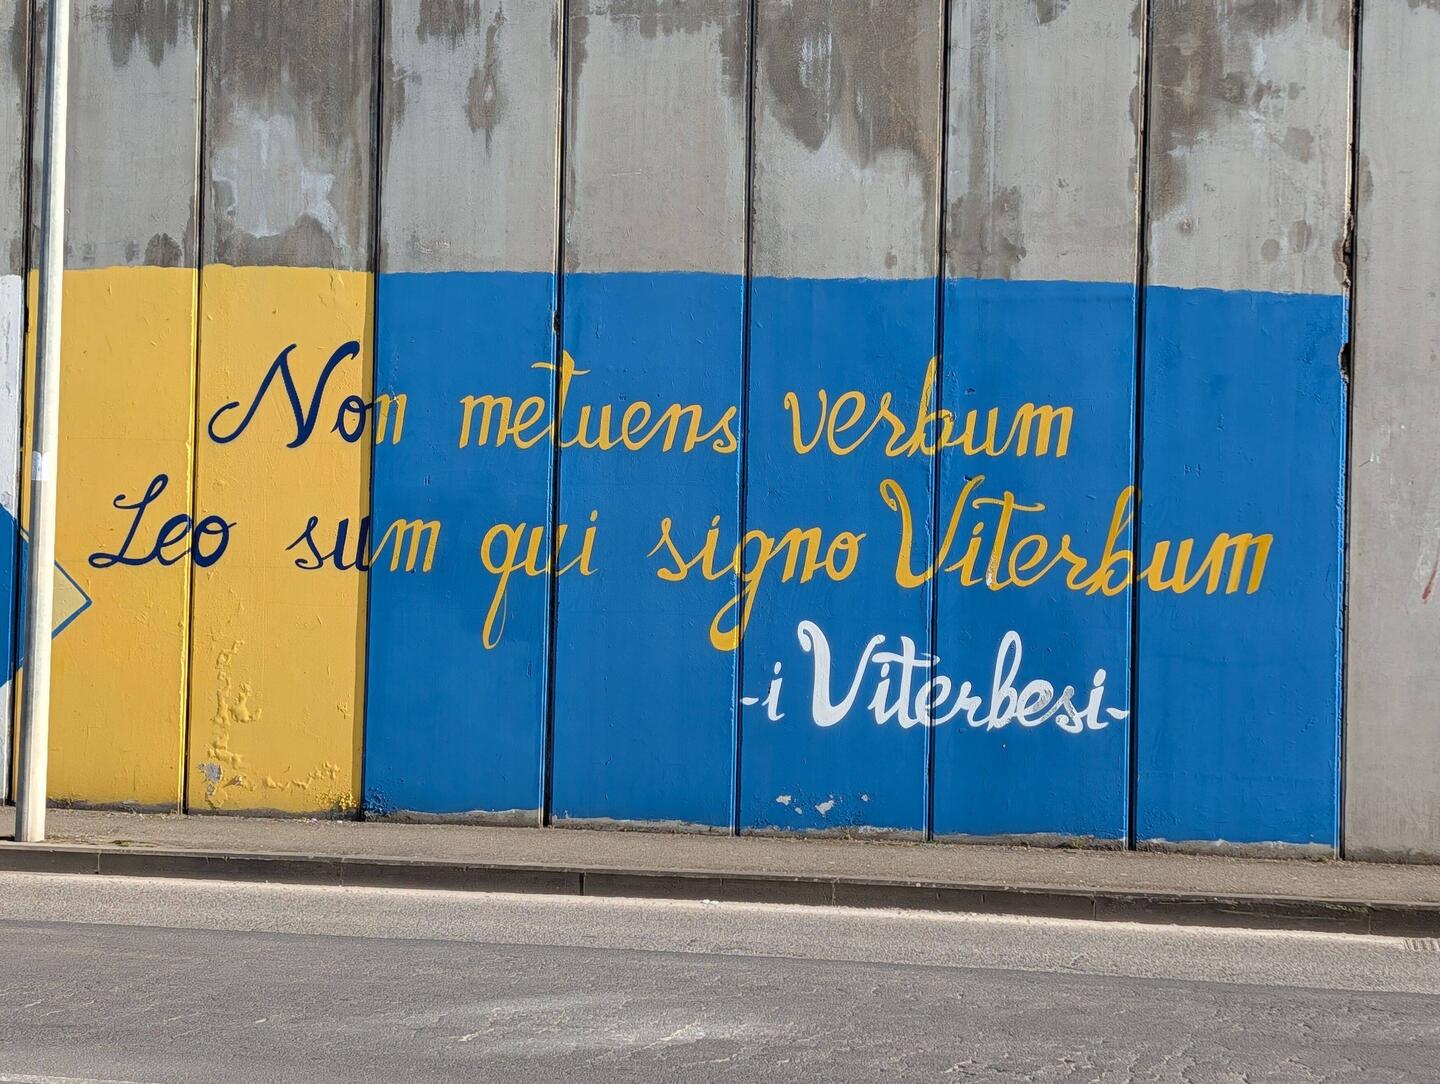 Non metuens verbum
Leo sum qui signo Viterbum
-i Viterbesi-